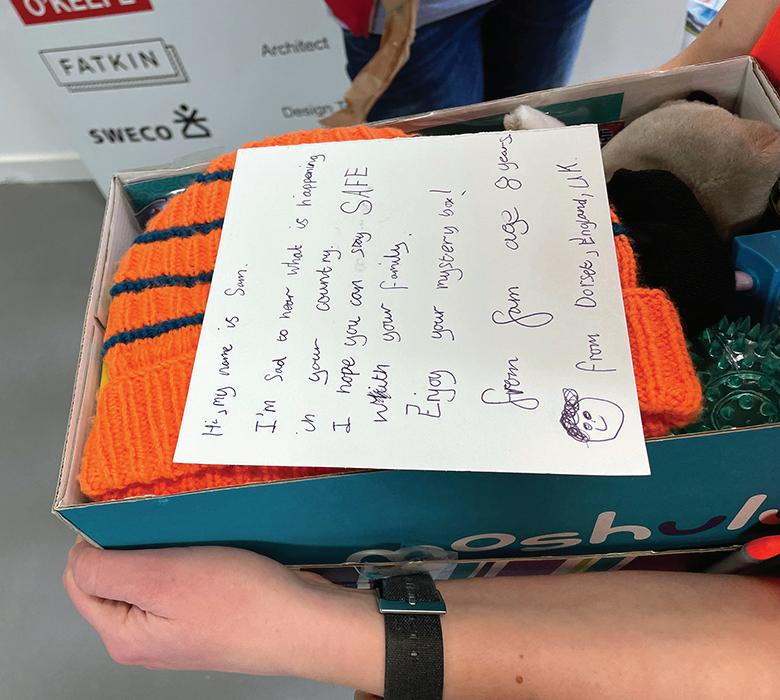 O'KEEFE
FATKIN
SWECO
Architect
Design T
Hi, my name is Sam.
I'm sad to hear what is happening
in your country.
I hope you can stay SAFE
with your family.
Enjoy your mystery box!
from Sam age 8 years
from Dorset, England, UK.
moshulu